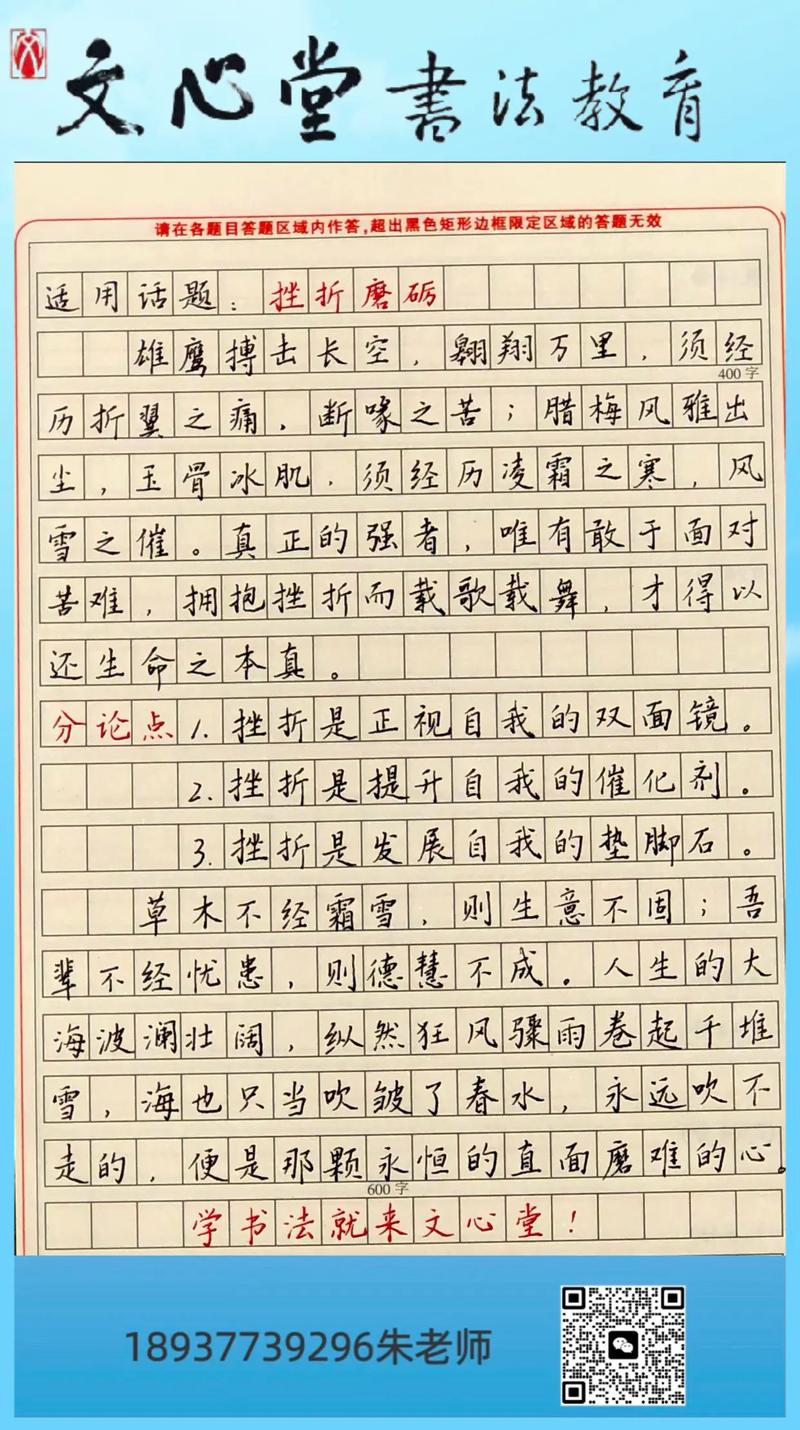 文心堂书法教育
请在各题目答题区域内作答,超出黑色矩形边框限定区域的答题无效
适用话题：挫折磨砺
雄鹰搏击长空，翱翔万里，须经
400字
历折翼之痛，断喙之苦；腊梅风雅出
尘，玉骨冰肌，须经历凌霜之寒，风
雪之催。真正的强者，唯有敢于面对
苦难，拥抱挫折而载歌载舞，才得以
还生命之本真。
分论点1.挫折是正视自我的双面镜。
2.挫折是提升自我的催化剂。
3.挫折是发展自我的垫脚石。
草木不经霜雪，则生意不固；吾
辈不经忧患，则德慧不成。人生的大
海波澜壮阔，纵然狂风骤雨卷起千堆
雪，海也只当吹皱了春水，永远吹不
走的，便是那颗永恒的直面磨难的心。
600字
学书法就来文心堂！
18937739296朱老师